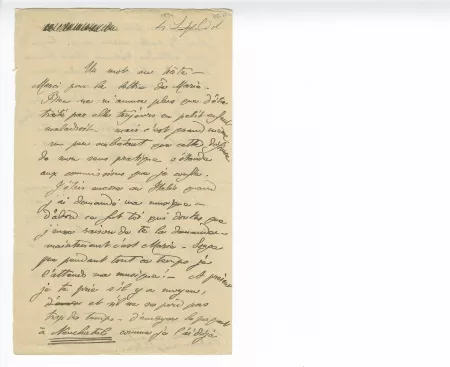 Un mot en hâte —
Merci pour la lettre de Marie.
Rien ne m'amuse plus que d'être
traité par elle toujours en petit enfant
maladroit mais c'est quand même
un peu que cette
de mon sens pratique s'étende
aux commissions que je confie.
J'étais encore en Italie quand
j'ai demandé ma musique —
d'abord ce fut toi qui doutas que
j'eusse raison de te la demander —
maintenant c'est Marie.
que pendant tout ce temps je
l'attends ma musique! — A présent
je te prie s'il y a moyen,
et si on ne perd pas
trop de temps — d'envoyer le paquet
à Neuchatel comme je l'ai déjà